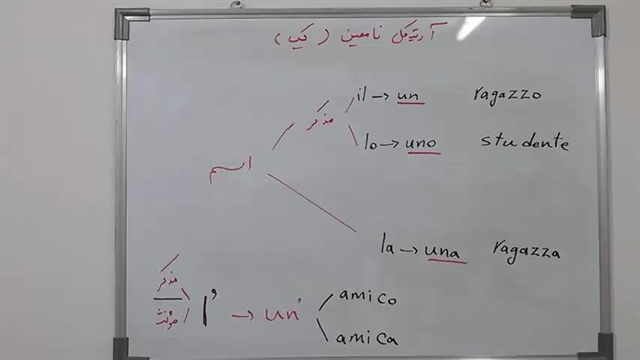 آرتیکل نامعین ( یک )
il → un ragazzo
مذکر
lo → uno studente
اسم
la → una ragazza
مذکر
مؤنث
l' → un'
amico
amica